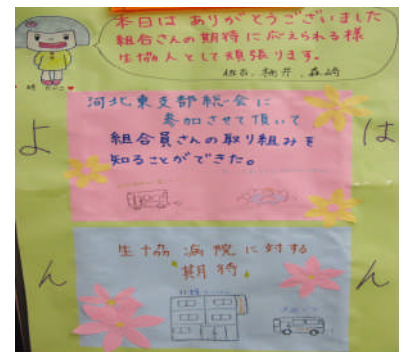 本日は ありがとうございました
組合さんの期待に応えられる様
生協人として頑張ります。
河北東支部総会に
参加させて頂いて
組合員さんの取り組みを
知ることができた。
生協病院に対する
期待
は
ん
よ
ん